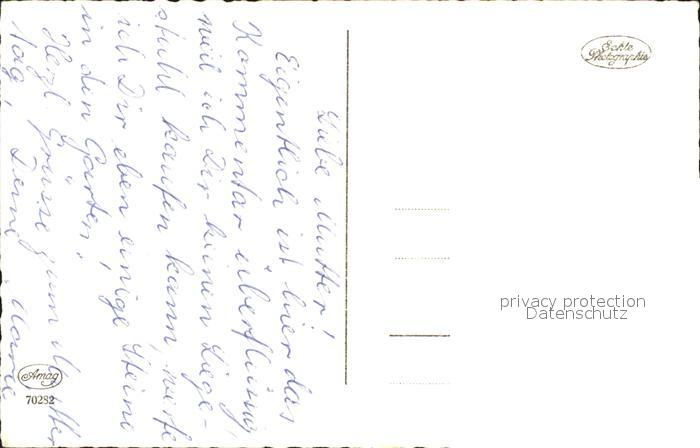 Liebe Mutter!
Eigentlich ist hier das
Kommentar überflüssig,
weil ich Dir keinen Liege-
stuhl kaufen kann, werfe
ich Dir eben einige Steine
in den Garten!
Herzl. Grüsse zum Mutter
tag, Deine
Echte
Photographie
privacy protection
Datenschutz
Amag
70282